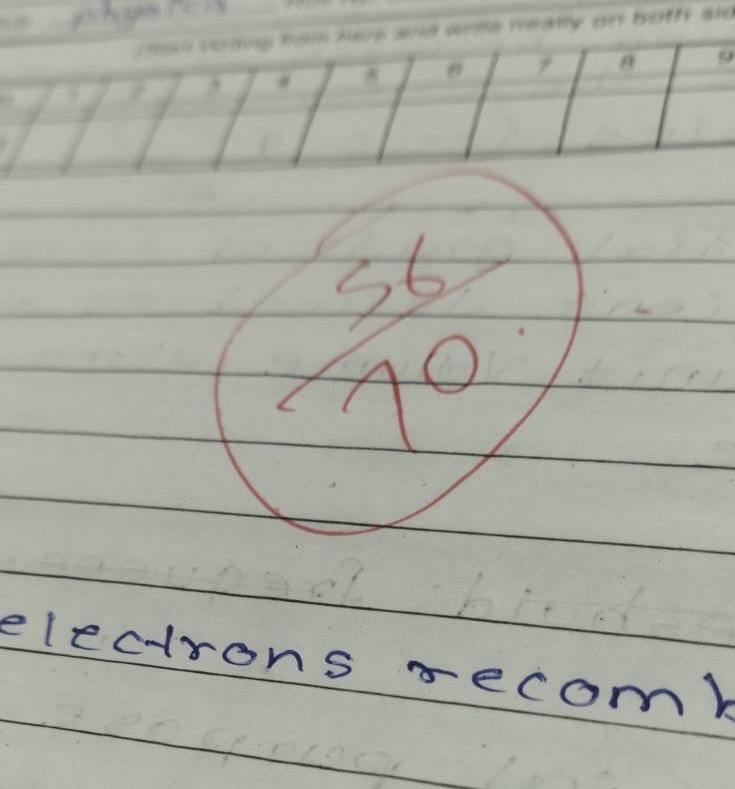 physics
start writing from here and write neatly on both sid
1 2 3 4 5 6 7 8 9
56
70
electrons recomb